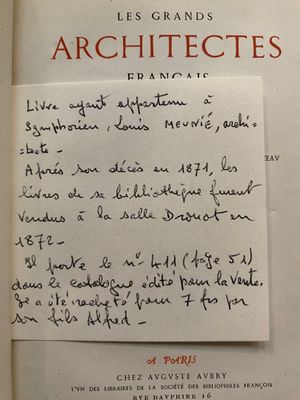 LES GRANDS
ARCHITECTES
FRANÇAIS
Livre ayant appartenu à
Symphorien, Louis MEUNIÉ, archi-
=tecte -
Après son décès en 1871, les
livres de sa bibliothèque furent
vendus à la salle Drouot en
1872 -
Il porte le n° 411 (page 51)
dans le catalogue édité pour la vente.
Il a été racheté pour 7 frs par
son fils Alfred -
EAU
A PARIS
CHEZ AVGVSTE AVBRY
L'VN DES LIBRAIRES DE LA SOCIÉTÉ DES BIBLIOPHILES FRANÇOIS
RVE DAVPHINE 16